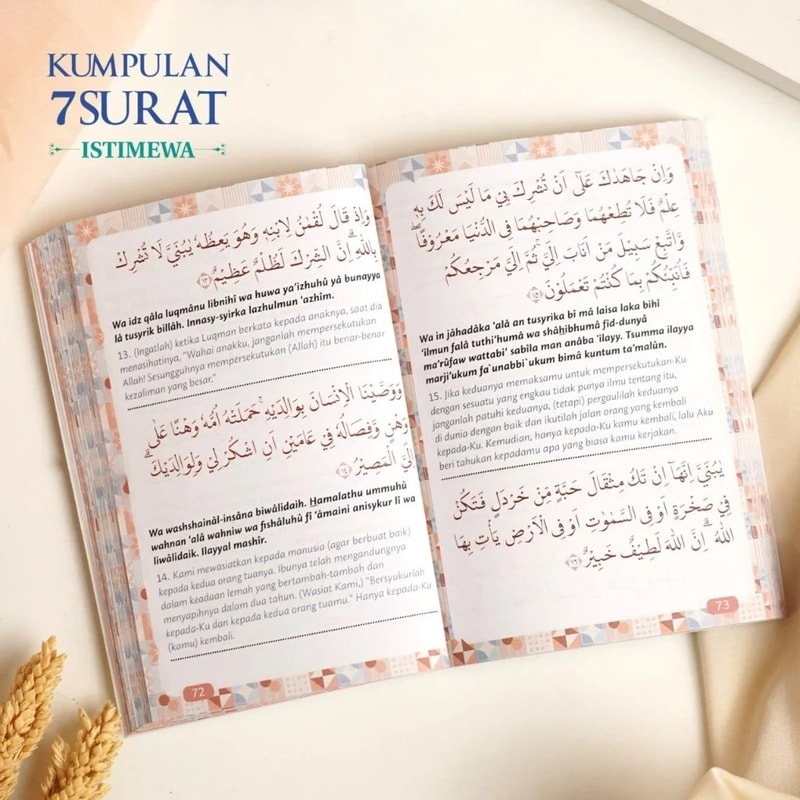 KUMPULAN
7SURAT
ISTIMEWA
وَاِذْ قَالَ لُقْمٰنُ لِابْنِهٖ وَهُوَ يَعِظُهٗ يٰبُنَيَّ لَا تُشْرِكْ
بِاللّٰهِ ۗاِنَّ الشِّرْكَ لَظُلْمٌ عَظِيْمٌ ١٣
Wa idz qâla luqmânu libnihî wa huwa ya'izhuhû yâ bunayya
lâ tusyrik billâh. Innasy-syirka lazhulmun 'azhîm.
13. (Ingatlah) ketika Luqman berkata kepada anaknya, saat dia
menasihatinya, "Wahai anakku, janganlah mempersekutukan
Allah! Sesungguhnya mempersekutukan (Allah) itu benar-benar
kezaliman yang besar."
وَوَصَّيْنَا الْاِنْسَانَ بِوَالِدَيْهِۚ حَمَلَتْهُ اُمُّهٗ وَهْنًا عَلٰى
وَهْنٍ وَّفِصَالُهٗ فِيْ عَامَيْنِ اَنِ اشْكُرْ لِيْ وَلِوَالِدَيْكَۗ
اِلَيَّ الْمَصِيْرُ ١٤
Wa washshainâl-insâna biwâlidaih. Hamalathu ummuhû
wahnan 'alâ wahniw wa fishâluhû fî 'âmaini anisykur lî wa
liwâlidaik. Ilayyal mashîr.
14. Kami mewasiatkan kepada manusia (agar berbuat baik)
kepada kedua orang tuanya. Ibunya telah mengandungnya
dalam keadaan lemah yang bertambah-tambah dan
menyapihnya dalam dua tahun. (Wasiat Kami,) "Bersyukurlah
kepada-Ku dan kepada kedua orang tuamu." Hanya kepada-Ku
(kamu) kembali.
72
وَاِنْ جَاهَدٰكَ عَلٰٓى اَنْ تُشْرِكَ بِيْ مَا لَيْسَ لَكَ بِهٖ
عِلْمٌ فَلَا تُطِعْهُمَا وَصَاحِبْهُمَا فِى الدُّنْيَا مَعْرُوْفًا ۖ
وَّاتَّبِعْ سَبِيْلَ مَنْ اَنَابَ اِلَيَّۚ ثُمَّ اِلَيَّ مَرْجِعُكُمْ
فَاُنَبِّئُكُمْ بِمَا كُنْتُمْ تَعْمَلُوْنَ ١٥
Wa in jâhadâka 'alâ an tusyrika bî mâ laisa laka bihî
'ilmun falâ tuthi'humâ wa shâhibhumâ fid-dunyâ
ma'rûfaw wattabi' sabîla man anâba 'ilayy. Tsumma ilayya
marji'ukum fa`unabbi`ukum bimâ kuntum ta'malûn.
15. Jika keduanya memaksamu untuk mempersekutukan-Ku
dengan sesuatu yang engkau tidak punya ilmu tentang itu,
janganlah patuhi keduanya, (tetapi) pergaulilah keduanya
di dunia dengan baik dan ikutilah jalan orang yang kembali
kepada-Ku. Kemudian, hanya kepada-Ku kamu kembali, lalu Aku
beri tahukan kepadamu apa yang biasa kamu kerjakan.
يٰبُنَيَّ اِنَّهَآ اِنْ تَكُ مِثْقَالَ حَبَّةٍ مِّنْ خَرْدَلٍ فَتَكُنْ
فِيْ صَخْرَةٍ اَوْ فِى السَّمٰوٰتِ اَوْ فِى الْاَرْضِ يَأْتِ بِهَا
اللّٰهُ ۗاِنَّ اللّٰهَ لَطِيْفٌ خَبِيْرٌ ١٦
73